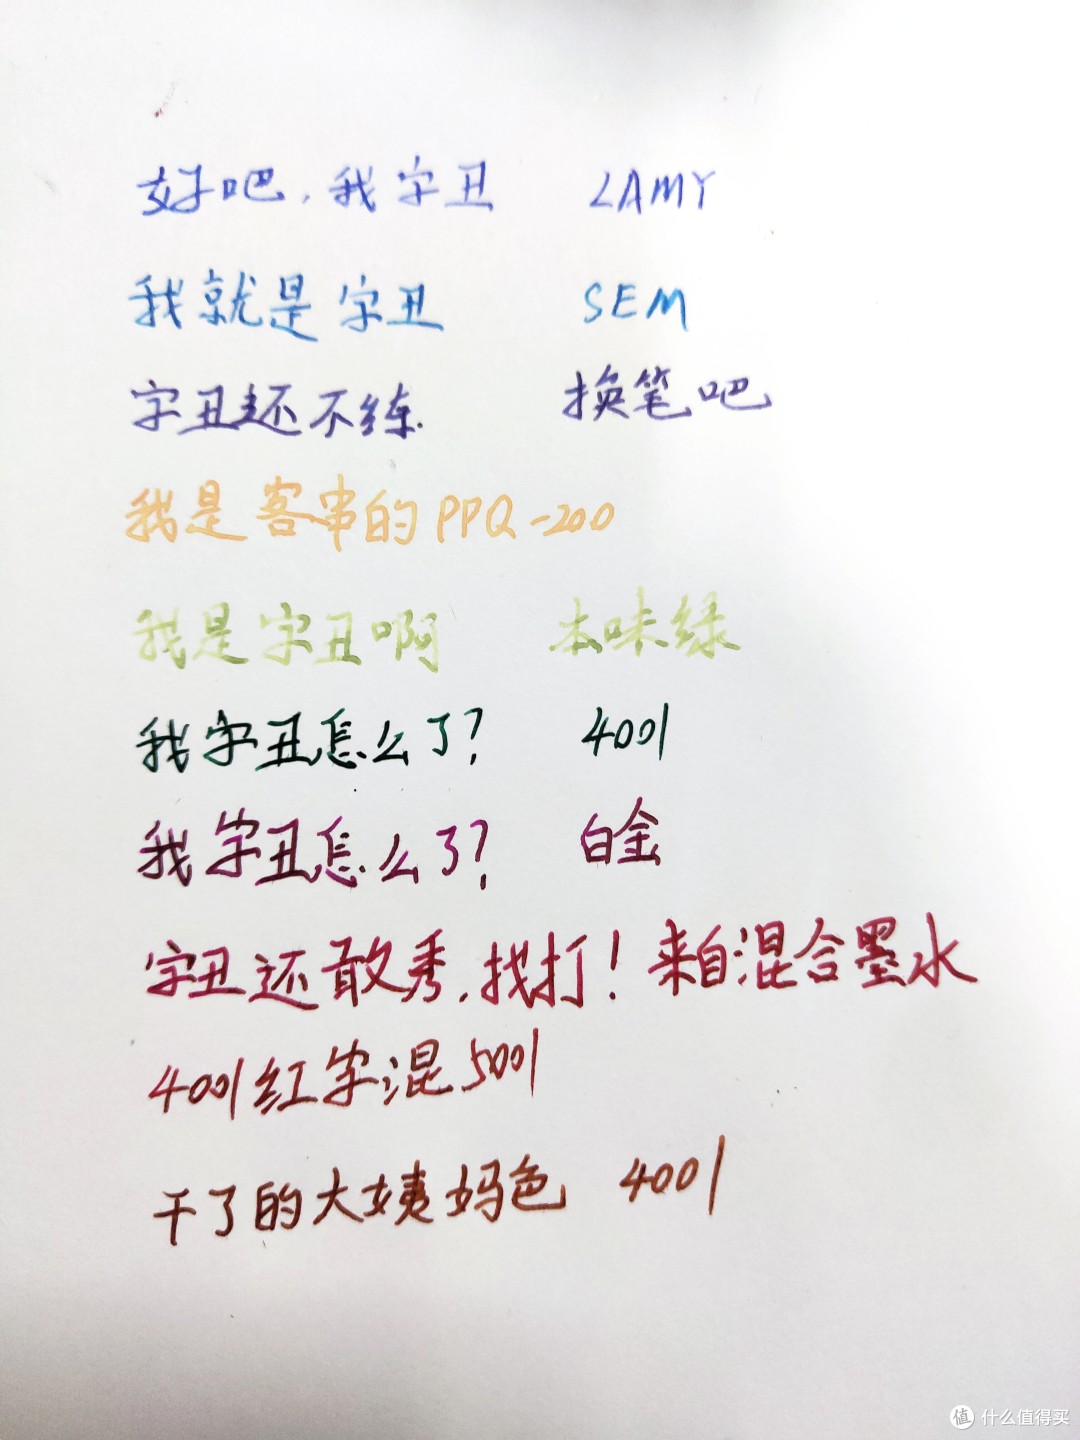 好吧，我字丑 LAMY
我就是字丑 SEM
字丑还不练. 换笔吧
我是客串的PPQ-200
我是字丑啊 本味绿
我字丑怎么了? 4001
我字丑怎么了? 白金
字丑还敢秀，找打！来自混合墨水
4001红字混5001
干了的大姨妈色 4001
值 什么值得买